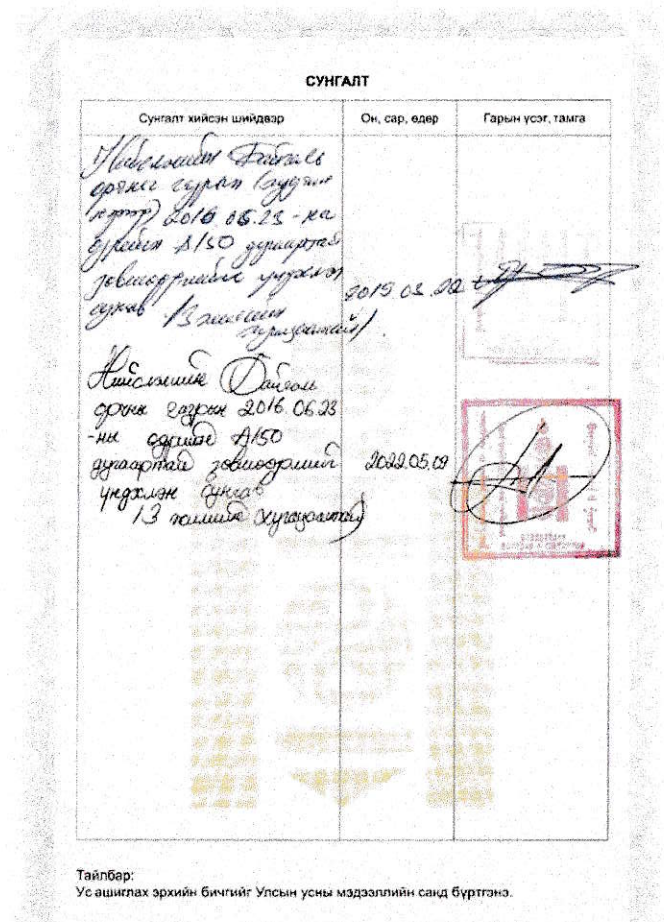 СУНГАЛТ
Сунгалт хийсэн шийдвэр
Он, сар, өдөр
Гарын үсэг, тамга
Нийслэлийн Байгаль
орчны газрын
2016.06.23-ны
өдрийн А150 дугаартай
зөвшөөрлийг үндэслэн
сунгав /3 жилийн
хугацаатай/.
2019.03.22
Нийслэлийн Байгаль
орчны газрын 2016.06.23
-ны өдрийн А150
дугаартай зөвшөөрлийг
үндэслэн сунгав
/3 жилийн хугацаатай/
2022.05.09
Тайлбар:
Ус ашиглах эрхийн бичгийг Улсын усны мэдээллийн санд бүртгэнэ.